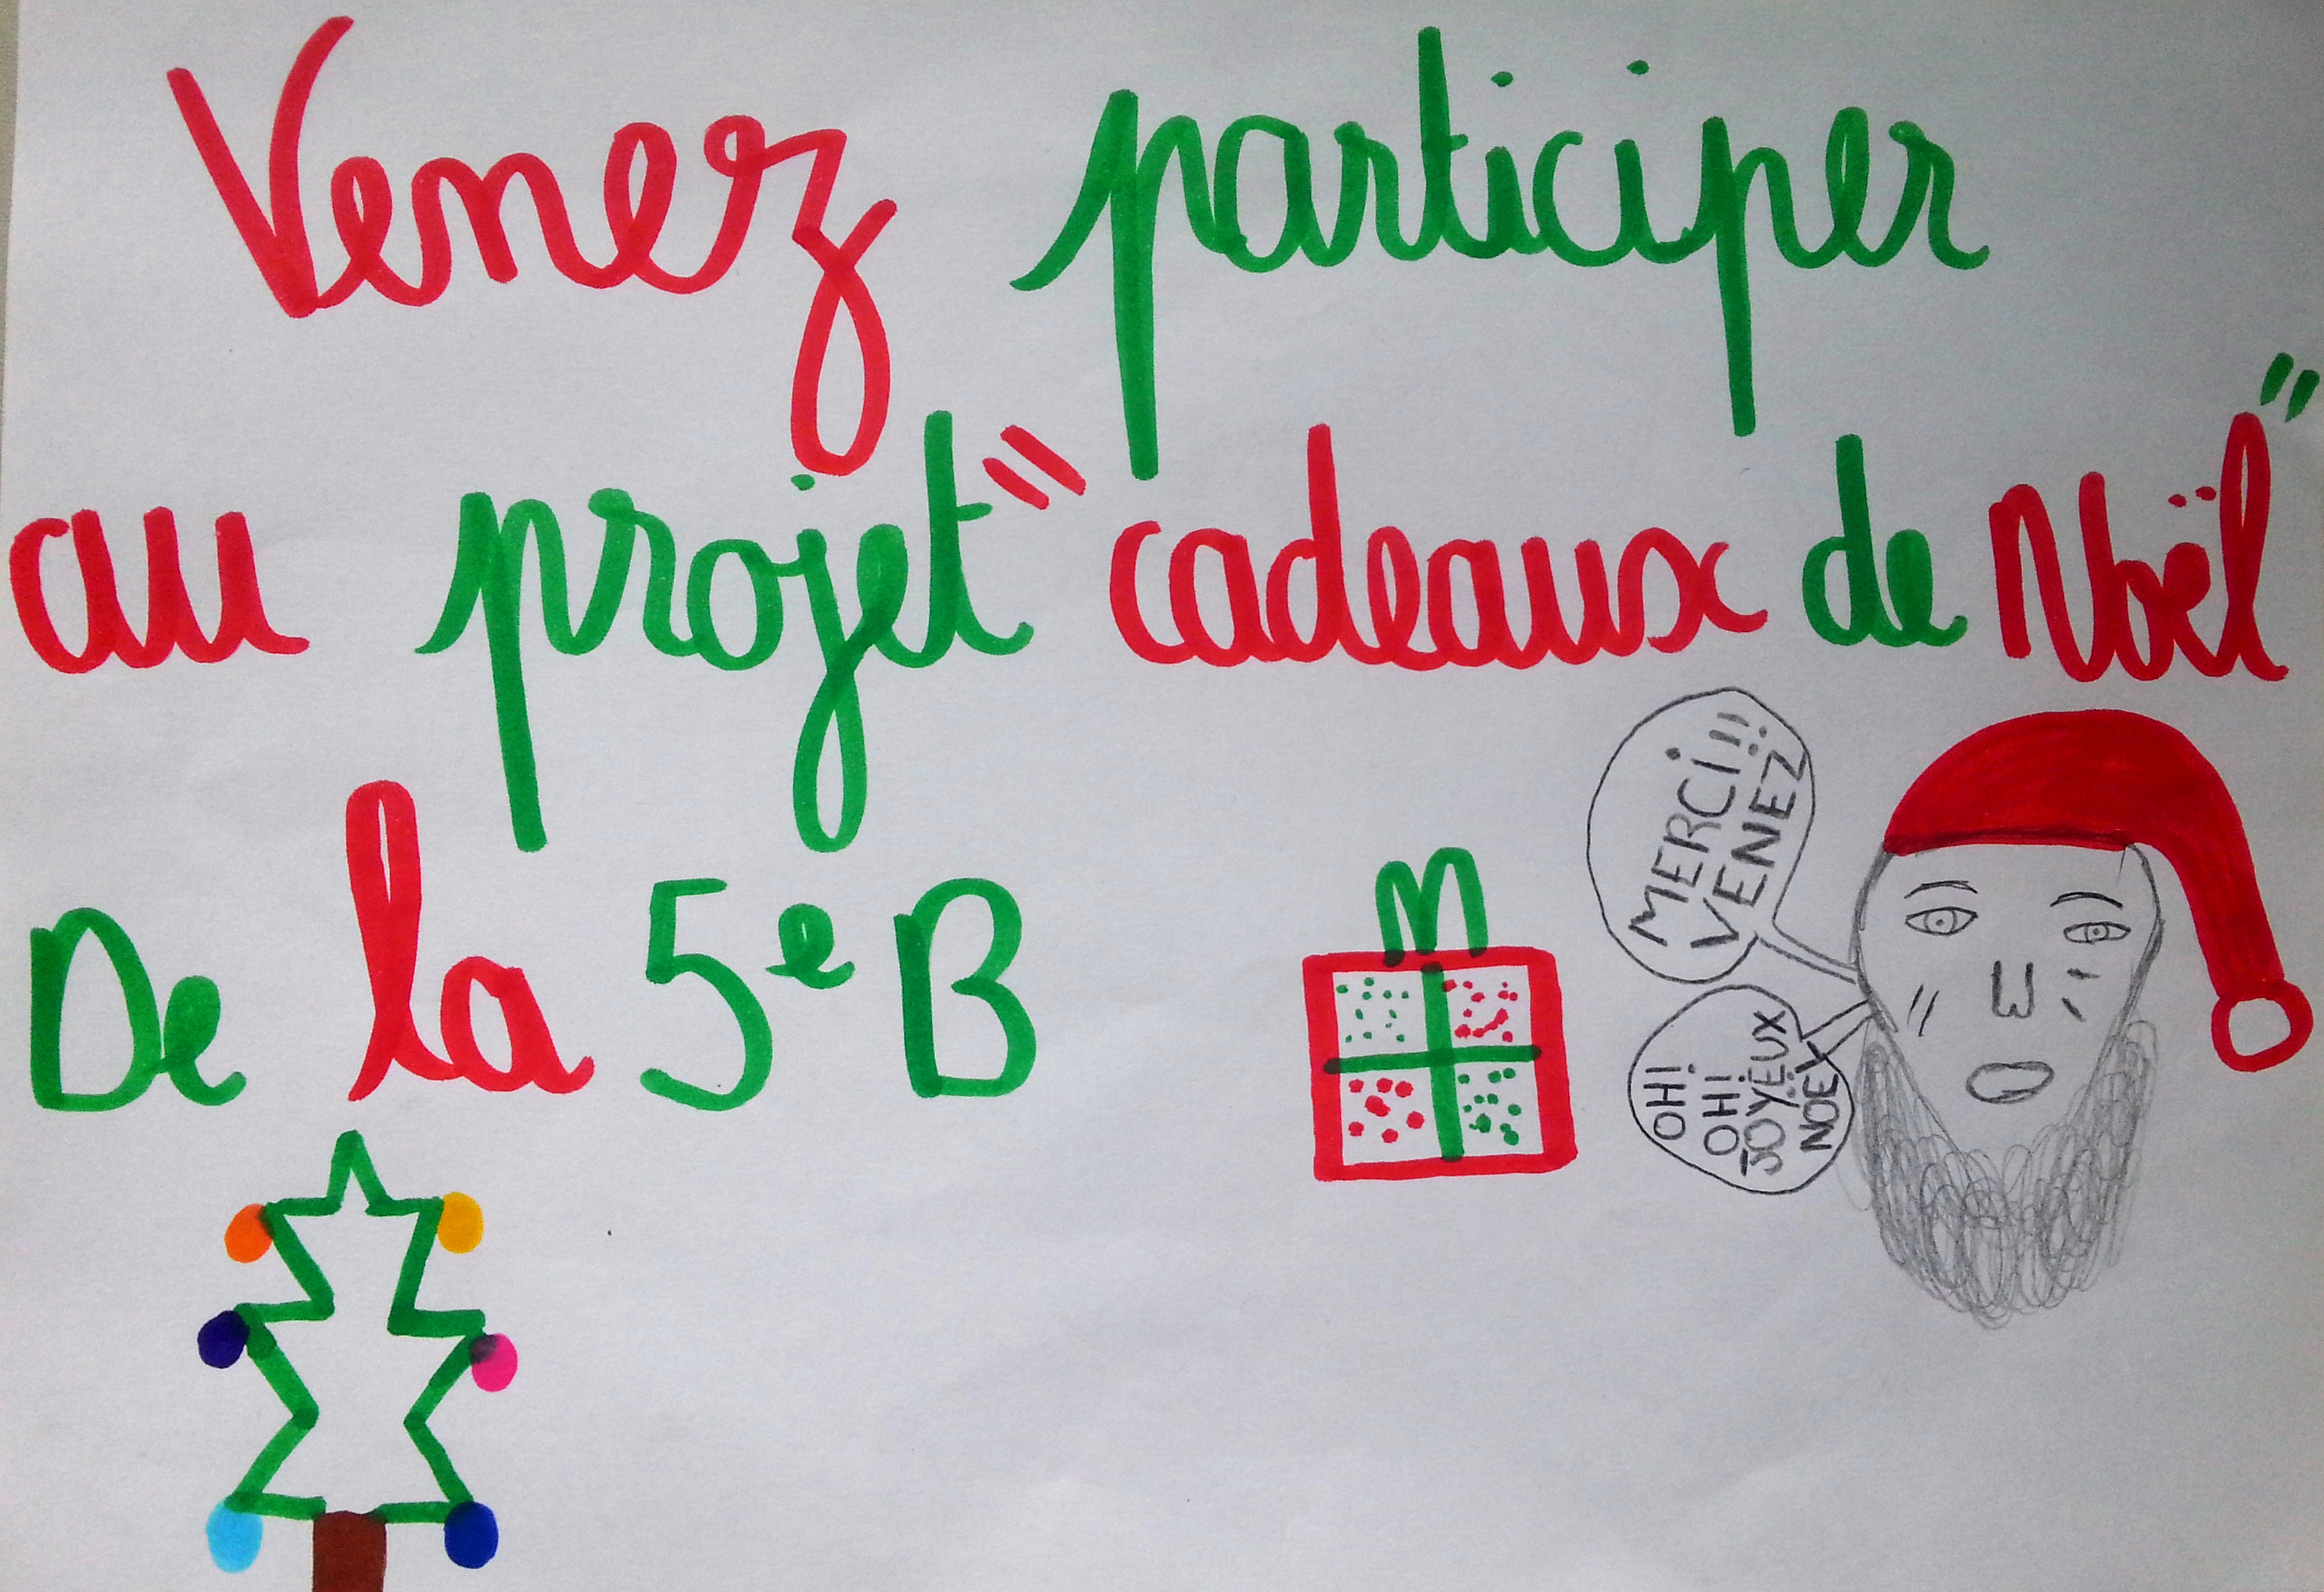 Venez participer
au projet "cadeaux de Noël"
De la 5e B
MERCI!!!
VENEZ
OH!
OH!
JOYEUX
NOEL